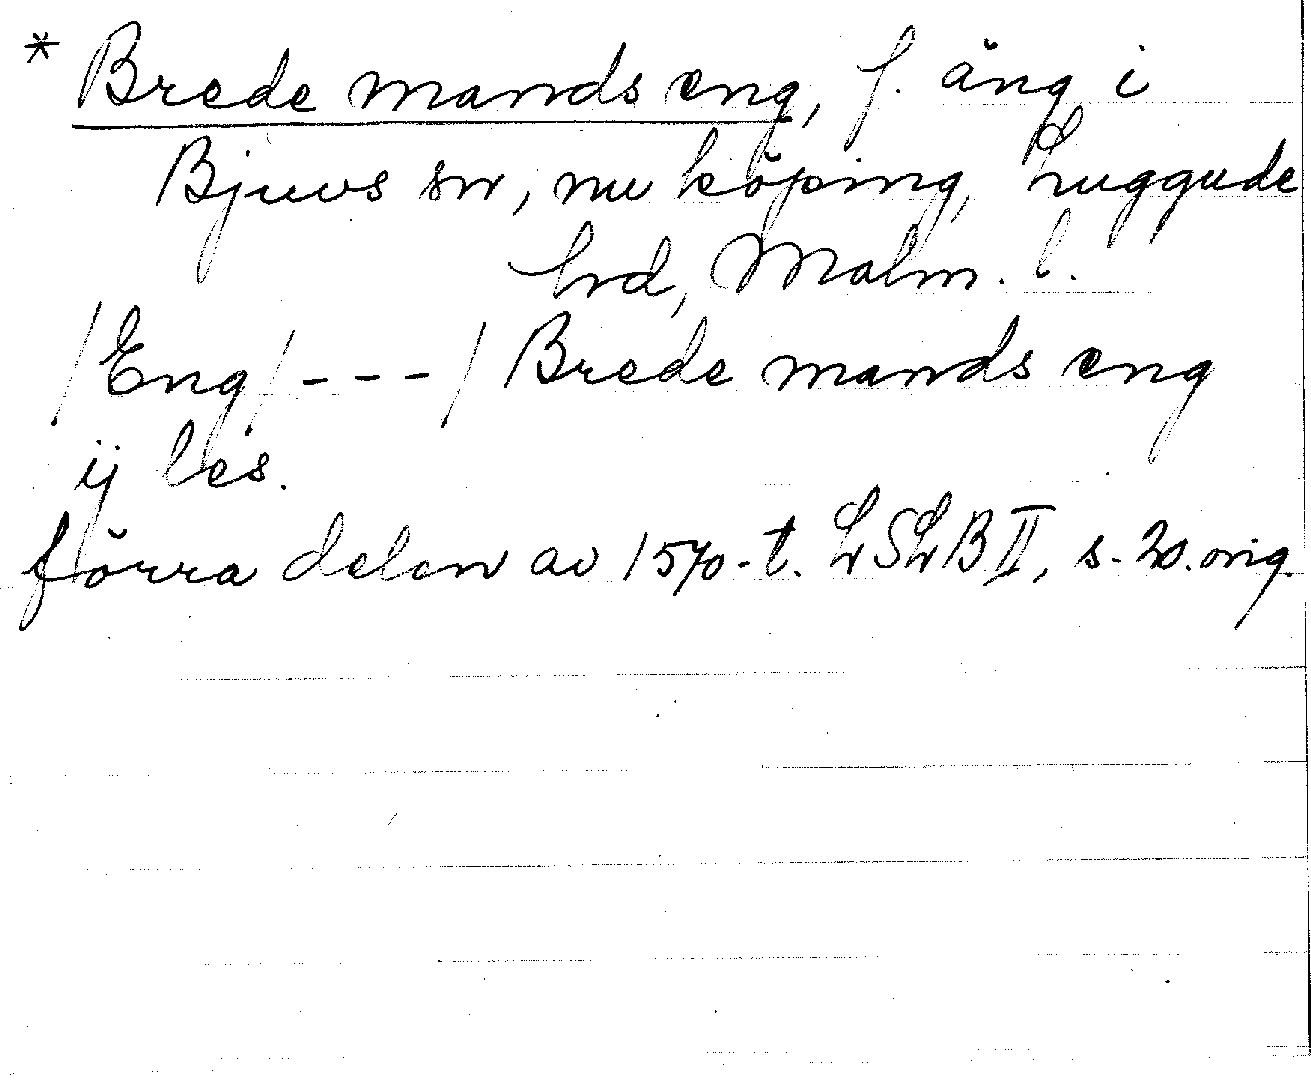 * Brede mands eng, f. äng i
Bjuvs sn, nu köping, Luggude
hd, Malm. l.
/Eng/---/ Brede mands eng
ij les.
förra delen av 1570-t. LSLB II, s. 20. orig.